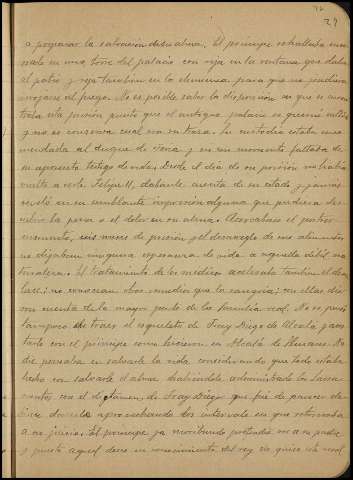 72
29
a procurar la salvación de su alma. El príncipe se hallaba ence
rrado en una torre del palacio con reja en la ventana que daba
al patio y reja también en la chimenea para que no pudiera
arrojarse al fuego. No es posible saber la disposición en que se encon
traba esta prisión puesto que el antiguo palacio se quemó
y no se conserva cual era su traza. La custodia estaba enco
mendada al duque de Feria y en un momento faltaba de
su aposento testigo de vida. Desde el día de su prisión no había
vuelto a verle Felipe II, dábanle cuenta de su estado y jamás
reveló en su semblante impresión alguna que pudiera des
cubrir la pena o el dolor en su alma. Acercábase el postrer
momento, seis meses de prisión y el desarreglo de sus alimentos
no dejaban ninguna esperanza de vida a aquella débil na
turaleza. El tratamiento de los médicos aceleraba también el des
lace; no conocían otro remedio que la sangría; con ellas die
ron cuenta de la mayor parte de la familia real. No se pensó
tampoco en traer el esqueleto de Fray Diego de Alcalá, para
tarlo con el príncipe como hicieron en Alcalá de Henares. Na
die pensaba en salvarle la vida considerando que todo estaba
hecho con salvarle el alma habiéndole administrado los Sacra
mentos con el dictamen de Fray Diego que fue de parecer de
bían dárseles aprovechando los intervalos en que retornaba
a su juicio. El príncipe ya moribundo pretendió ver a su padre
y puesto aquel deseo en conocimiento del rey no quiso este real